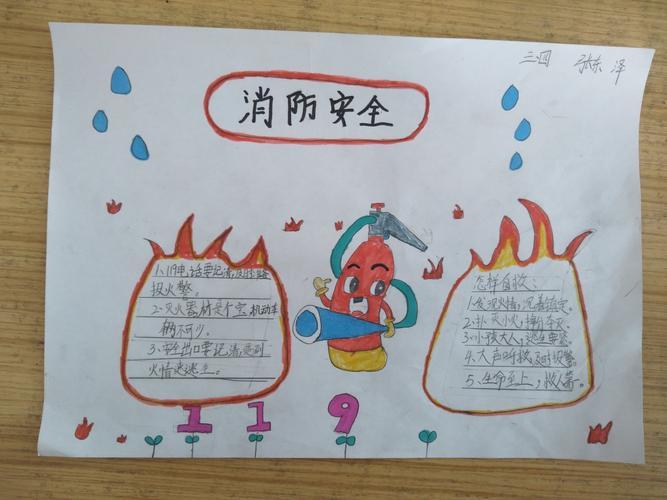 三.四 张东泽
消防安全
1、119电话要记清及时
报火警。
2.灭火器材是个宝,机动车
辆不可少。
3、安全出口要记清遇到
火情速逃生。
怎样自救:
1.发现火情,沉着镇定。
2.扑灭小火,
3.小孩大人,逃生要紧。
4.大声呼救,及时报警。
5、生命至上,救人第一。
119